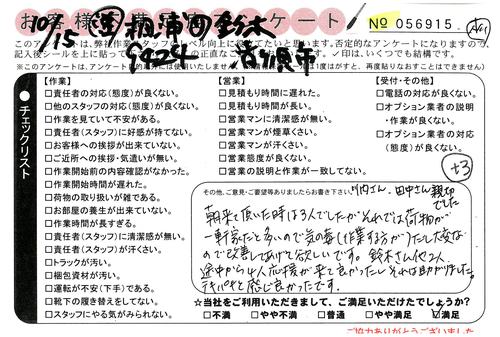 お客様アンケート
№ 056915
10/15
鈴木
このアンケートは、弊社作業スタッフのレベル向上に役立てたいと思います。否定的なアンケートになりますので、
記入後シールを上に貼って
✓印は、いくつでも結構です。
※このアンケートは、
再度貼りなおすことはできません)
+3
●チェックリスト
【作業】
□責任者の対応(態度)が良くない。
□他のスタッフの対応(態度)が良くない。
□作業を見ていて不安がある。
□責任者(スタッフ)に好感が持てない。
□お客様への挨拶が出来ていない。
□ご近所への挨拶・気遣いが無い。
□作業開始前の内容確認がなかった。
□作業開始時間が遅れた。
□荷物の取り扱いが雑である。
□お部屋の養生が出来ていない。
□作業時間が長すぎる。
□責任者(スタッフ)に清潔感が無い。
□責任者(スタッフ)が汗くさい。
□トラックが汚い。
□梱包資材が汚い。
□運転が不安(下手)である。
□靴下の履き替えをしてない。
□スタッフにやる気がみられない。
【営業】
□見積もり時間に遅れた。
□見積もり時間が長い。
□営業マンに清潔感が無い。
□営業マンが煙草くさい。
□営業マンが汗くさい。
□営業態度が良くない。
□営業の説明と作業が一致してない。
【受付・その他】
□電話の対応が良くない。
□オプション業者の説明
・作業が良くない。
□オプション業者の対応
(態度)が良くない。
その他、ご意見・ご要望等ありましたらお書き下さい。
田中さん 親切でした
朝来て頂いた時は3人でしたがそれでは荷物が
一軒家だと多いので気の毒(作業する方が)だし大変な
ので改善してあげて欲しいです。鈴木さん他2人
途中から4人応援が来て良かったし それは助かりました。
テキパキと感じ良かったです。
☆当社をご利用いただきまして、ご満足いただけたでしょうか?
□不満 □やや不満 □普通 □やや満足 ☑満足
ご協力ありがとうございました